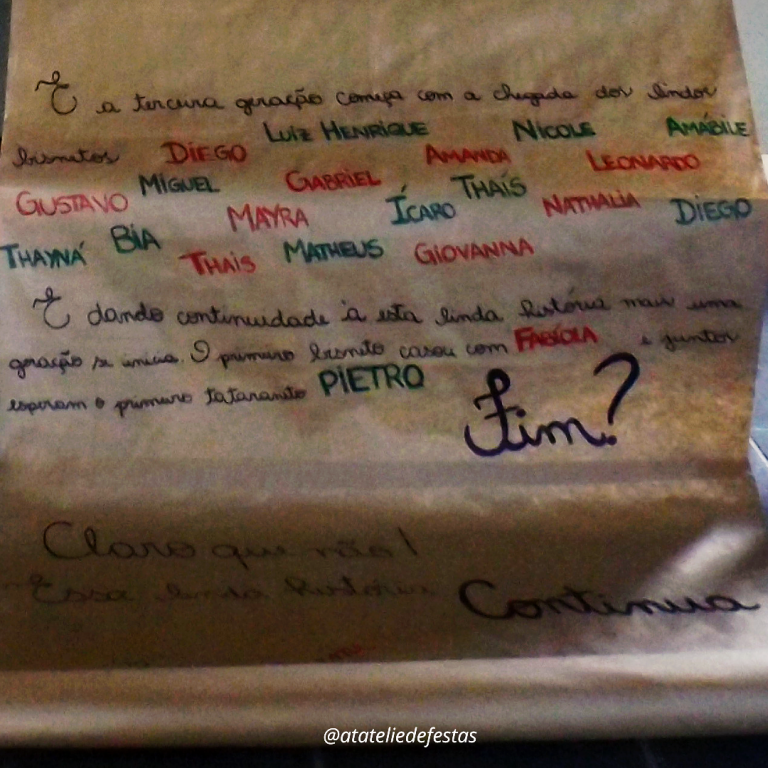 E a terceira geração começa com a chegada dos lindos
bisnetos DIEGO LUIZ HENRIQUE AMANDA NICOLE LEONARDO AMÁBILE
GUSTAVO MIGUEL GABRIEL THAÍS
MAYRA ÍCARO NATHALIA DIEGO
THAYNÁ BIA THAIS MATHEUS GIOVANNA
E dando continuidade à esta linda história mais uma
geração se inicia. O primeiro bisneto casou com FABÍOLA e juntos
esperam o primeiro tataraneto PIETRO
Fim?
Claro que não!
Essa linda história Continua
@atateliedefestas